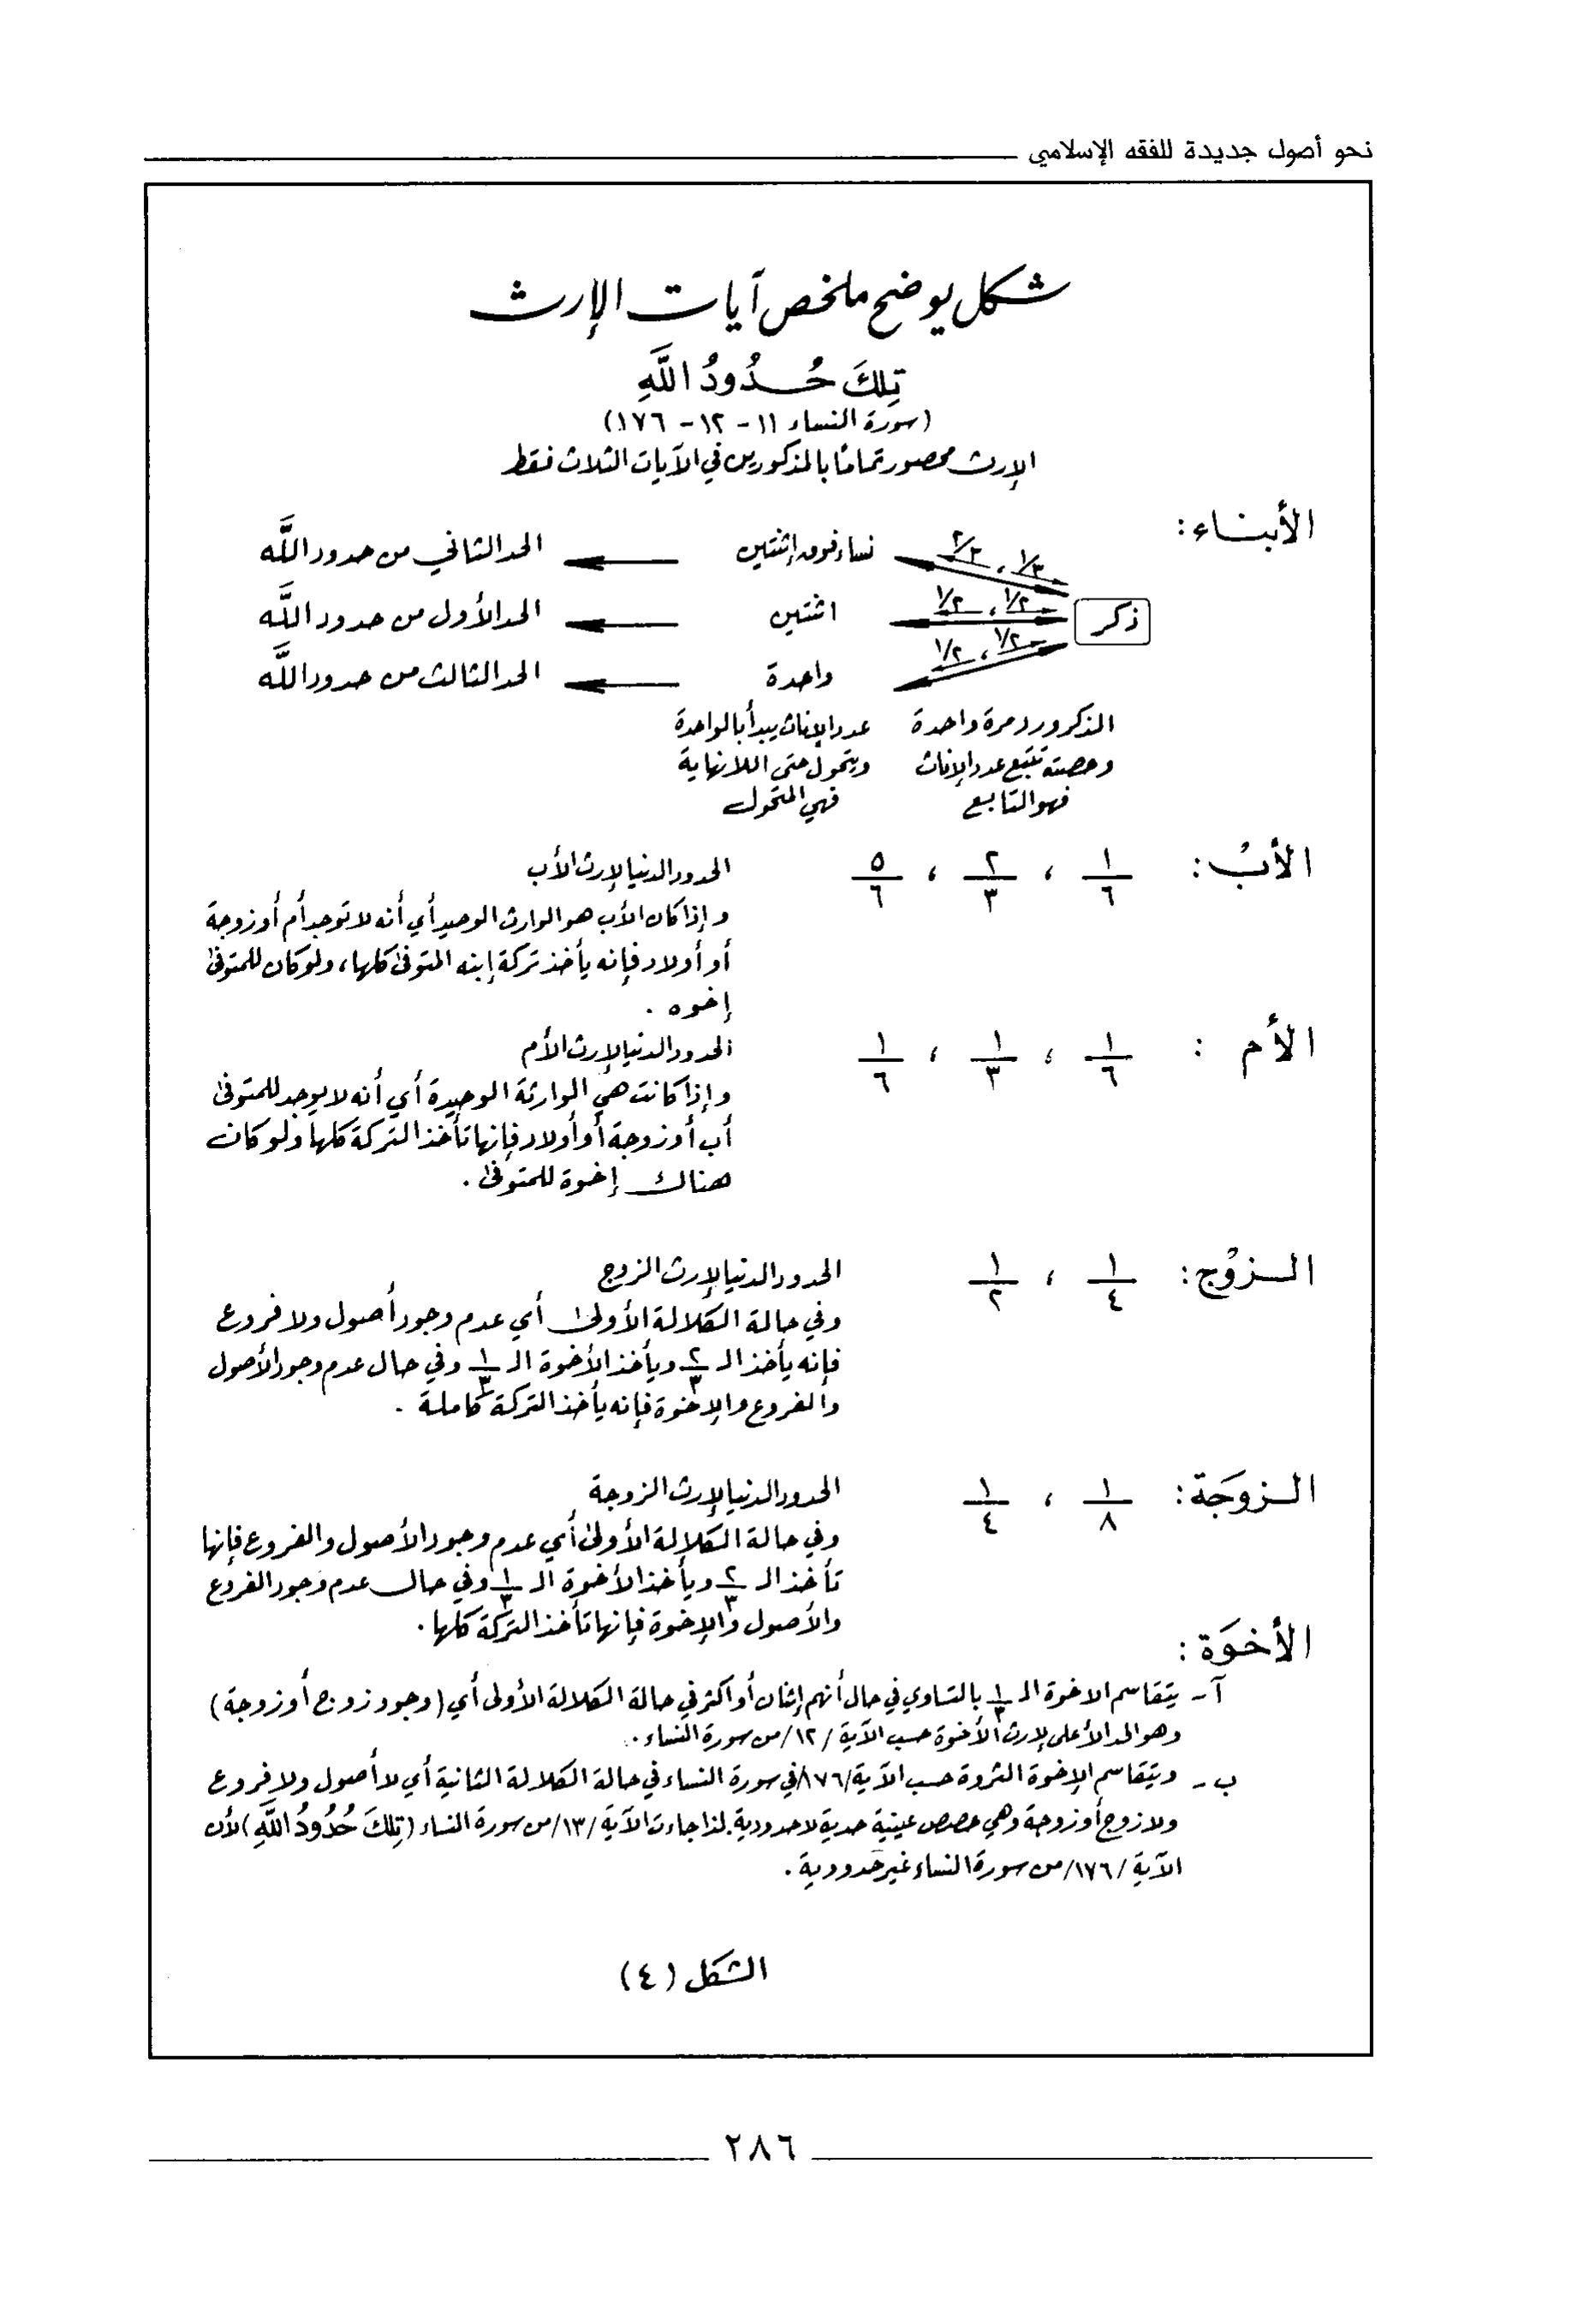 نحو أصول جديدة للفقه الإسلامي
شكل يوضح ملخص آيات الإرث
تِلكَ حُدُودُ اللَّهِ
(سورة النساء ١١ - ١٢ - ١٧٦)
الإرث محصور تماماً بالمذكورين في الآيات الثلاث فقط
الأبناء:
ذكر
١/٣ ، ٢/٣ نساء فوق إثنتين الحد الثاني من حدود اللَّه
١/٢ ، ١/٢ اثنتين الحد الأول من حدود اللَّه
١/٢ ، ١/٢ واحدة الحد الثالث من حدود اللَّه
الذكر ورد مرة واحدة
وحصته تتبع عدد الإناث
فهو التابع
عدد الإناث يبدأ بالواحدة
ويتحول حتى اللانهاية
فهي المتحول
الأبُ: ١/٦ ، ٢/٣ ، ٥/٦
الحدود الدنيا لإرث الأب
وإذا كان الأب هو الوارث الوحيد أي أنه لا توجد أم أو زوجة
أو أولاد فإنه يأخذ تركة إبنه المتوفى كلها، ولو كان للمتوفى
إخوه .
الأم : ١/٦ ، ١/٣ ، ١/٦
الحدود الدنيا لإرث الأم
وإذا كانت هي الوارثة الوحيدة أي أنه لا يوجد للمتوفى
أب أو زوجة أو أولاد فإنها تأخذ التركة كلها ولو كان
هناك إخوة للمتوفى .
الزوْج: ١/٤ ، ١/٢
الحدود الدنيا لإرث الزوج
وفي حالة الكلالة الأولى أي عدم وجود أصول ولا فروع
فإنه يأخذ الـ ٢/٣ ويأخذ الأخوة الـ ١/٣ وفي حال عدم وجود الأصول
والفروع والإخوة فإنه يأخذ التركة كاملة .
الزوجَة: ١/٨ ، ١/٤
الحدود الدنيا لإرث الزوجة
وفي حالة الكلالة الأولى أي عدم وجود الأصول والفروع فإنها
تأخذ الـ ٢/٣ ويأخذ الأخوة الـ ١/٣ وفي حال عدم وجود الفروع
والأصول والإخوة فإنها تأخذ التركة كلها .
الأخوَة :
آ - يتقاسم الاخوة الـ ١/٣ بالتساوي في حال أنهم إثنان أو أكثر في حالة الكلالة الأولى أي (وجود زوج أو زوجة)
وهو الحد الأعلى لإرث الأخوة حسب الآية /١٢/ من سورة النساء .
ب - ويتقاسم الإخوة الثروة حسب الآية /١٧٦/ في سورة النساء في حالة الكلالة الثانية أي لا أصول ولا فروع
ولا زوج أو زوجة وهي حصص عينية حدية لا حدودية. لذا جاءت الآية /١٣/ من سورة النساء (تِلكَ حُدُودُ اللَّهِ) لأن
الآية /١٧٦/ من سورة النساء غير حدودية .
الشكل (٤)
٢٨٦